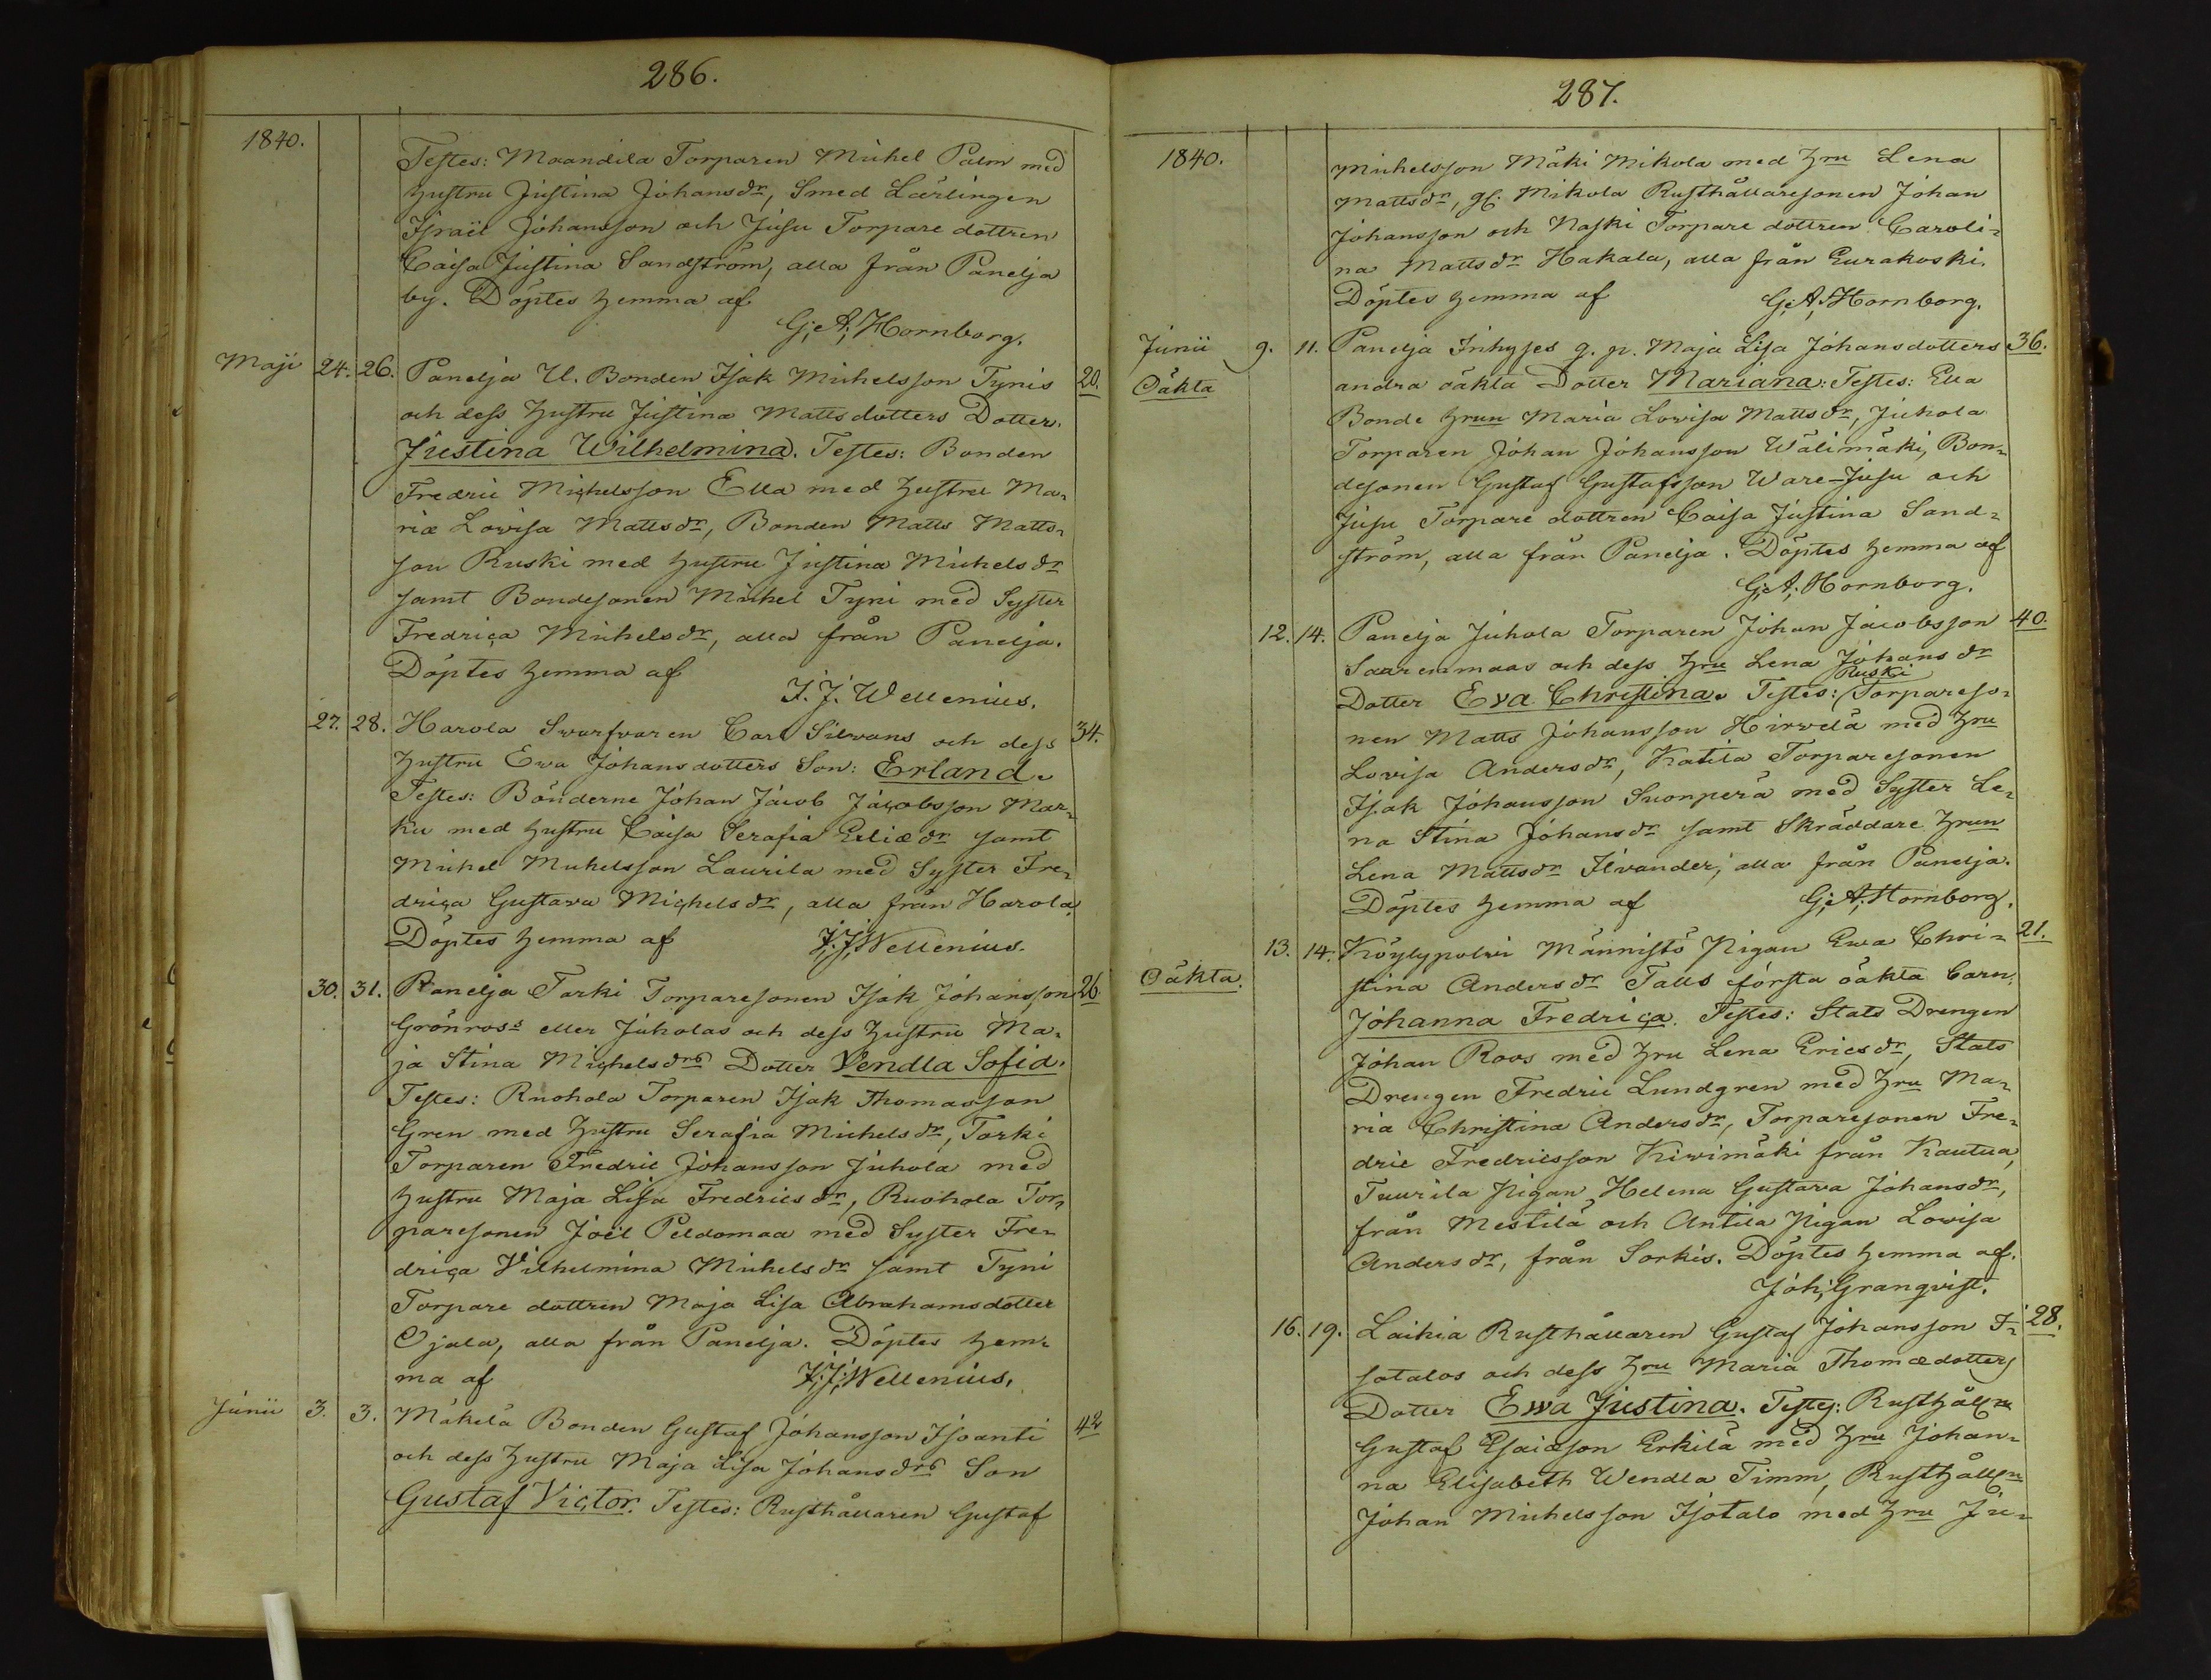 286.
1840.
Testes: Maandila Torparen Michel Palm med
hustru Justina Johansdr, Smed Lärlingen
Israël Johansson och Jusu Torpare dottren
Caisa Justina Sandström, alla från Panelja
by. Döptes hemma af
G: A: Hornborg.
Maji 24. 26. Panelja U. Bonden Isak Michelsson Tynis 20.
och dess hustru Justina Mattsdotters Dotter.
Justina Wilhelmina. Testes: Bonden
Fredric Michelsson Ella med hustru Ma-
ria Lovisa Mattsdr, Bonden Matts Matts-
son Ruski med hustru Justina Michelsdr
samt Bondesonen Michel Tyni med Syster
Fredrica Michelsdr, alla från Panelja.
Döptes hemma af
J. J. Wellenius.
27. 28. Harola Swarfvaren Carl Silvans och dess 34.
hustru Ewa Johansdotters Son: Erland.
Testes: Bönderne Johan Jacob Jacobsson Mar-
ku med hustru Caisa Serafia Eliædr samt
Michel Michelsson Laurila med Syster Fre-
drica Gustava Michelsdr, alla från Harola,
Döptes hemma af J: J: Wellenius.
30. 31. Panelja Tarki Torparesonen Isak Johansson 26.
Grönross eller Juholas och dess hustru Ma-
ja Stina Michelsdrs Dotter Vendla Sofia.
Testes: Ruohola Torparen Isak Thomasson
Gren med hustru Serafia Michelsdr, Tarki
Torparen Fredric Johansson Juhola med
hustru Maja Lisa Fredricsdr, Ruohola Tor-
paresonen Joël Peldomaa med Syster Fre-
drica Vilhelmina Michelsdr samt Tyni
Torpare dottren Maja Lisa Abrahamsdotter
Ojala, alla från Panelja. Döptes hem-
ma af J: J: Wellenius.
Junii 3. 3. Mäkelä Bonden Gustaf Johansson Isoanti 42
och dess hustru Maja Lisa Johansdrs Son
Gustaf Victor. Testes: Rusthållaren Gustaf
287.
1840.
Michelsson Mäki Mikola med hru Lena
Mattsdr, gl: Mikola Rusthållaresonen Johan
Johansson och Naski Torpare dottren Caroli-
na Mattsdr Hakala, alla från Eurakoski.
Döptes hemma af G: A: Hornborg.
Junii 9. 11. Panelja Inhyses q. p. Maja Lisa Johansdotters 36.
Oäkta andra oäkta Dotter Mariana: Testes: Ella
Bonde hrun Maria Lovisa Mattsdr, Juhola
Torparen Johan Johansson Wälimäki, Bon-
desonen Gustaf Gustafsson Ware-Jusu och
Jusu Torpare dottren Caisa Justina Sand-
ström, alla från Panelja. Döptes hemma af
G: A: Hornborg.
12. 14. Panelja Juhola Torparen Johan Jacobsson 40.
Saarenmaas och dess hru Lena Johansdr
Ruski
Dotter Eva Christina. Testes: Torpareso-
nen Matts Johansson Hirwelä med hru
Lovisa Andersdr, Katila Torparesonen
Isak Johansson Suonperä med Syster Le-
na Stina Johansdr samt Skräddare hrun
Lena Mattsdr Ilvander, alla från Panelja.
Döptes hemma af G: A: Hornborg.
13. 14. Köylypolvi Männistö Pigan Ewa Chri- 21.
Oäkta. stina Andersdr Talls första oäkta Barn.
Johanna Fredrica. Testes: Stats Drengen
Johan Roos med hru Lena Ericsdr, Stats
Drengen Fredric Lundgren med hru Ma-
ria Christina Andersdr, Torparesonen Fre-
dric Fredricsson Kivimäki från Kautua,
Tuurila Pigan Helena Gustava Johansdr,
från Mestilä och Antila Pigan Lovisa
Andersdr, från Sorkis. Döptes hemma af.
Joh: Granqvist.
16. 19. Laihia Rusthållaren Gustaf Johansson I- 28.
sotalos och dess hru Maria Thomædotters
Dotter Ewa Justina. Testes: Rusthålln
Gustaf Esaiasson Erkilä med hru Johan-
na Elisabeth Wendla Timm, Rusthålln
Johan Michelsson Isotalo med hru Ju-